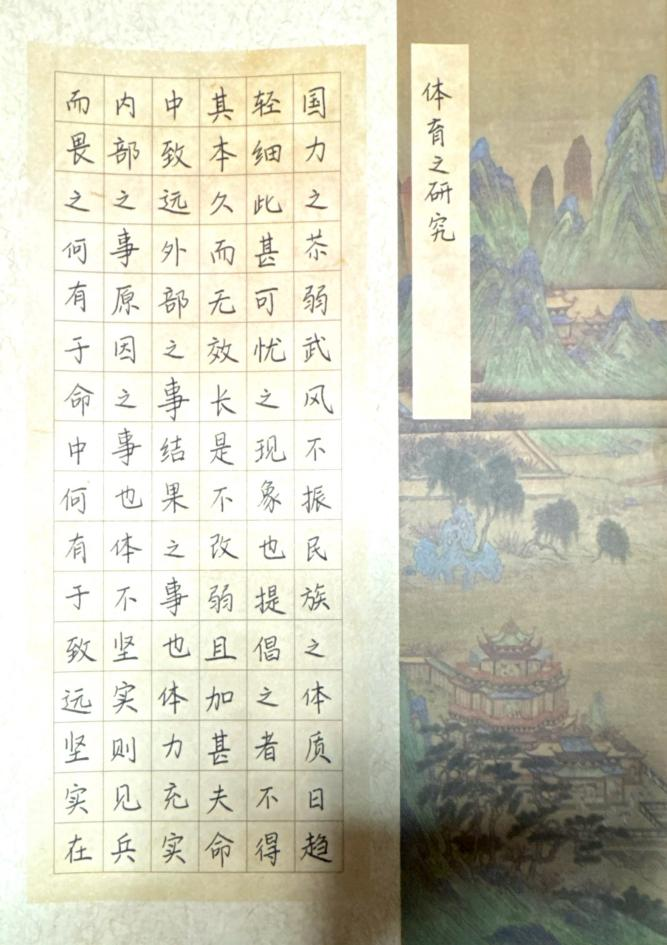 体育之研究
国力之苶弱武风不振民族之体质日趋
轻细此甚可忧之现象也提倡之者不得
其本久而无效长是不改弱且加甚夫命
中致远外部之事结果之事也体力充实
内部之事原因之事也体不坚实则见兵
而畏之何有于命中何有于致远坚实在